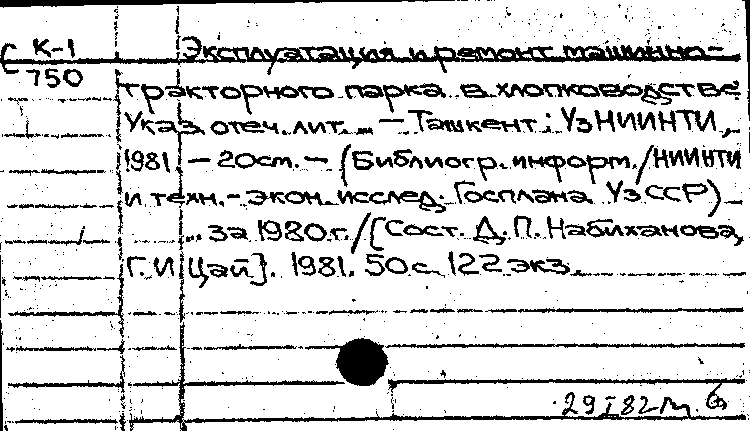 С К-1
750
Эксплуатация и ремонт машинно-
тракторного парка в хлопководстве:
Указ. отеч. лит. ... — Ташкент: УзНИИНТИ,
1981. — 20 см. — (Библиогр. информ. / НИИНТИ
и техн.-экон. исслед. Госплана УзССР)
... за 1980 г. / [Сост. Д. П. Набиханова,
Г. И. Цай]. 1981. 50 с. 122 экз.
29 I 82